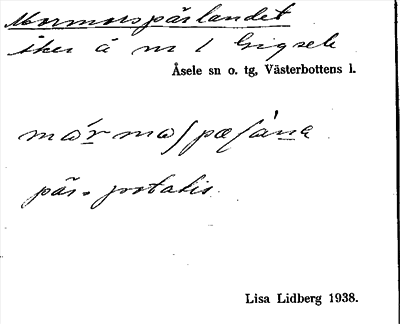 Mormorspärlandet
åker å nr 1 Gigsele
Åsele sn o. tg, Västerbottens l.
pär = potatis
Lisa Lidberg 1938.